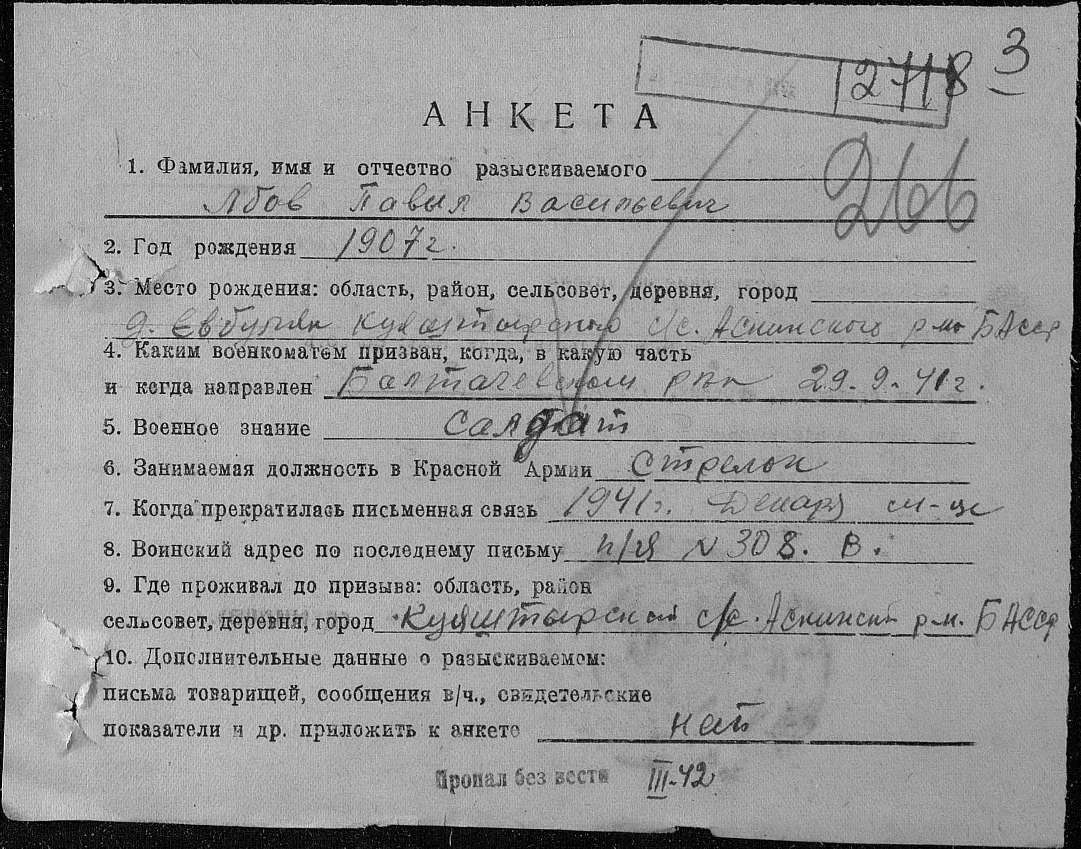 12718 3
АНКЕТА
266
1. Фамилия, имя и отчество разыскиваемого
Лбов Павыл Васильевич
2. Год рождения 1907 г.
3. Место рождения: область, район, сельсовет, деревня, город
д. Куяштырского с/с. Аскинского р-на БАССР
4. Каким военкоматом призван, когда, в какую часть
и когда направлен Балтачевском рвк 29.9.41 г.
5. Военное знание Салдат
6. Занимаемая должность в Красной Армии Стрелок
7. Когда прекратилась письменная связь 1941 г. м-це
8. Воинский адрес по последнему письму п/я N 308. В.
9. Где проживал до призыва: область, район
сельсовет, деревня, город Куяштырский с/с. Аскинский р-н. БАССР
10. Дополнительные данные о разыскиваемом:
письма товарищей, сообщения в/ч., свидетельские
показатели и др. приложить к анкете нет
Пропал без вести III-42